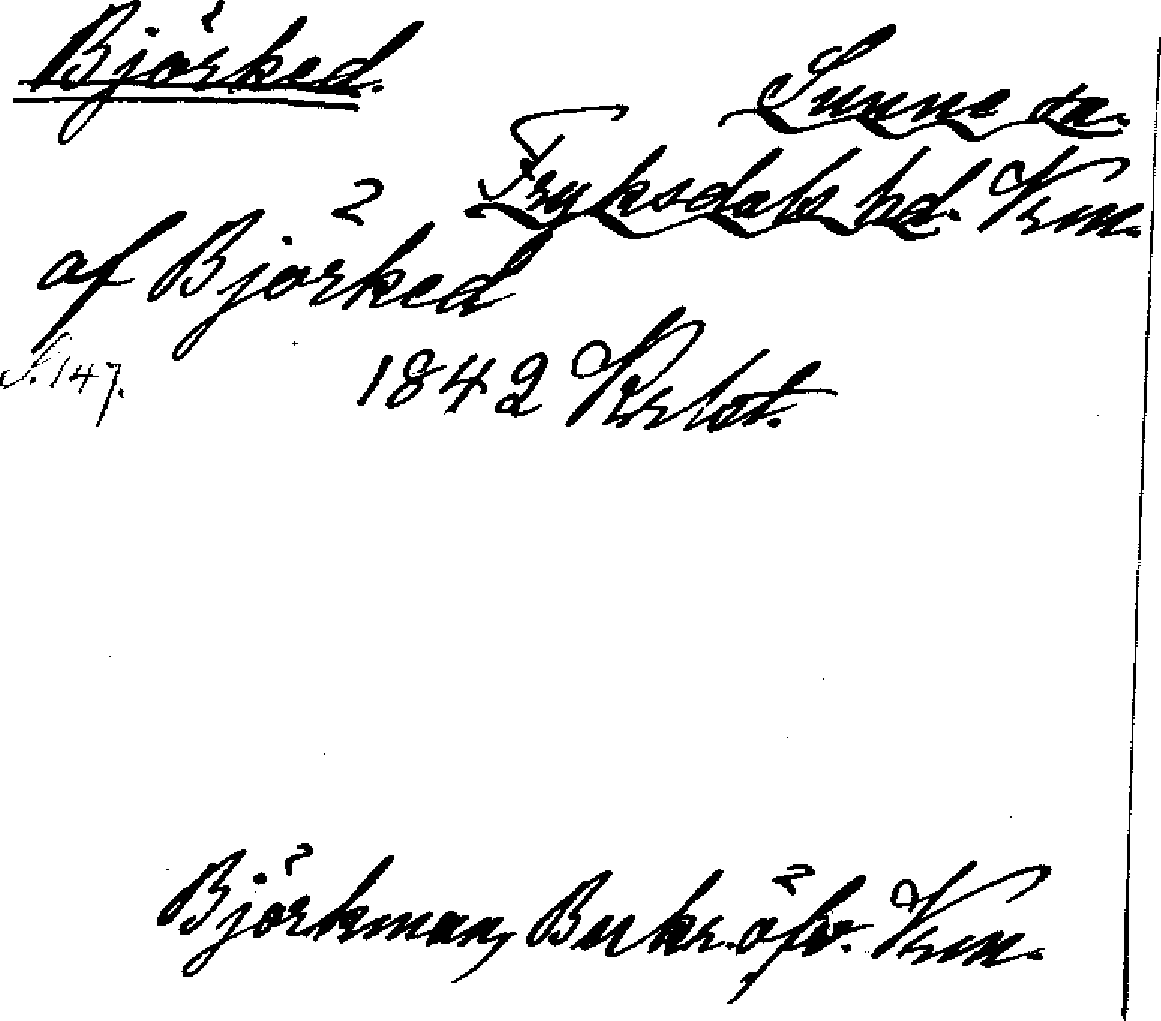 Björked.
Sunne sn.
Fryksdals hd. Vrm.
af Björked
S. 147.
1842 Krbt.
Björkman, Bruksöfv. Vrm.